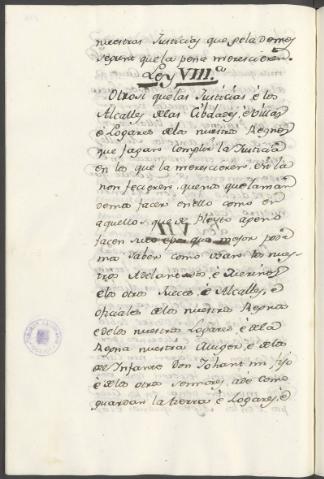 nuestras Justicias que gela demos
segunt que la pena meresciere.
Ley VIII.
Otrosi que las Justicias e los
Alcalles de las Cibdades, e Villas
e Logares de los nuestros Regnos
que fagan complir la Justicia
en los que la merescieren, en la
non fecieren, que nos que la man
demos facer en ello como en
aquellos que a pleyto ageno
facen suio
mejor poda
mos saber como usan los nues
tros Adelantados, e Merinos
e los otros Jueces, e Alcalles, e
oficiales de los nuestros Regnos
e de los nuestros Logares e de la
Reyna nuestra Muger, e de los
del Infante Don Johan mi fijo
e de los otros sennores, e de como
guardan la tierra e Logares, e